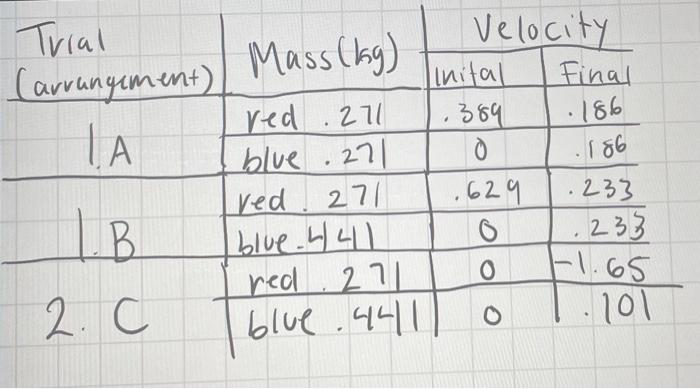 Trial (arrangement) Mass (kg) Velocity
Inital Final
1.A red .271 .389 .186
blue .271 0 .186
1.B red .271 .629 .233
blue .441 0 .233
2. C red .271 0 -1.65
blue .4411 0 .101